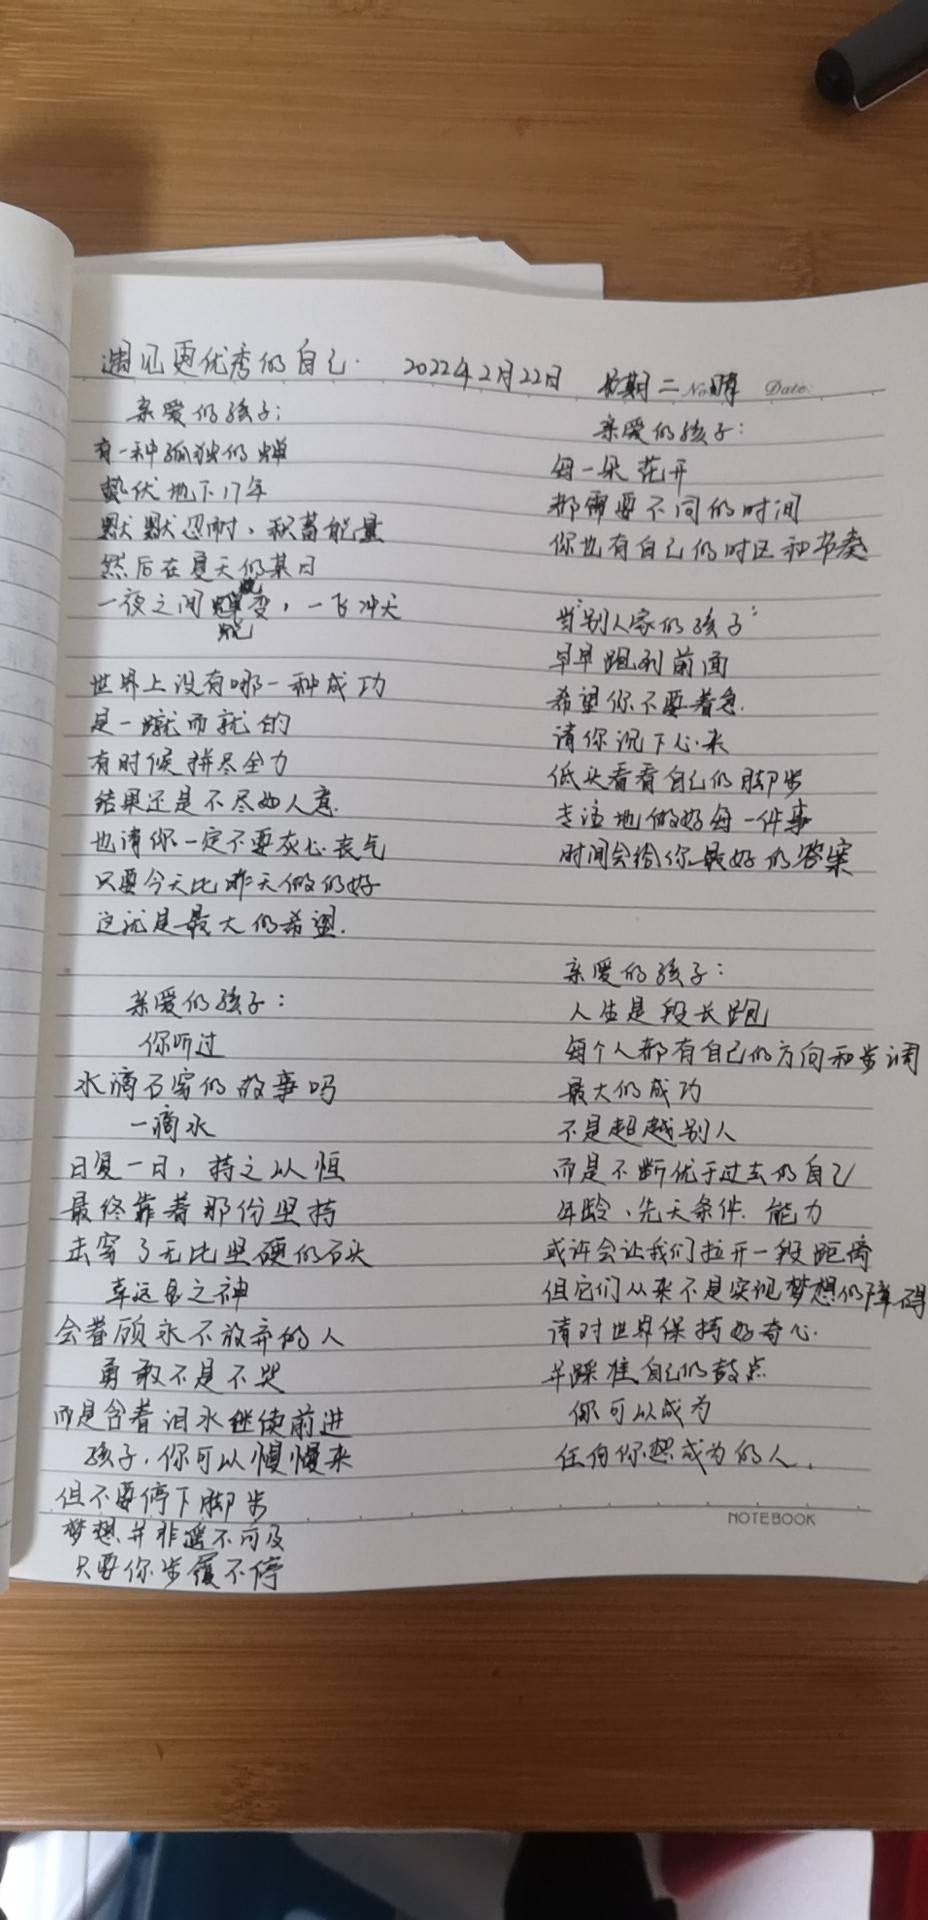 遇见更优秀的自己. 2022年2月22日 星期二 No. 晴 Date:
亲爱的孩子:
有一种孤独的蝉
蛰伏地下17年
默默忍耐、积蓄能量
然后在夏天的某日
一夜之间蜕变，一飞冲天
世界上没有哪一种成功
是一蹴而就的
有时候拼尽全力
结果还是不尽如人意.
也请你一定不要灰心丧气
只要今天比昨天做的好
这就是最大的希望.
亲爱的孩子:
你听过
水滴石穿的故事吗
一滴水
日复一日，持之以恒
最终靠着那份坚持
击穿了无比坚硬的石头
幸运之神
会眷顾永不放弃的人
勇敢不是不哭
而是含着泪水继续前进
孩子，你可以慢慢来
但不要停下脚步
梦想并非遥不可及
只要你步履不停
亲爱的孩子:
每一朵花开
都需要不同的时间
你也有自己的时区和节奏
当“别人家的孩子”
早早跑到前面
希望你不要着急.
请你沉下心来
低头看看自己的脚步
专注地做好每一件事
时间会给你最好的答案
亲爱的孩子:
人生是段长跑
每个人都有自己的方向和步调
最大的成功
不是超越别人
而是不断优于过去的自己
年龄、先天条件、能力
或许会让我们拉开一段距离
但它们从来不是实现梦想的障碍
请对世界保持好奇心.
并踩准自己的鼓点
你可以成为
任何你想成为的人.
NOTEBOOK